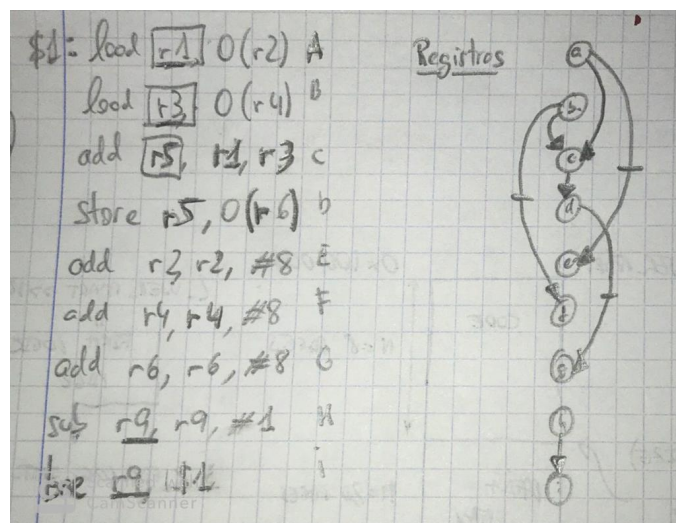 $1: load r1, 0(r2) A
load r3, 0(r4) B
add r5, r1, r3 C
store r5, 0(r6) D
add r2, r2, #8 E
add r4, r4, #8 F
add r6, r6, #8 G
sub r9, r9, #1 H
bne r9 $1 i
Registros
a
b
c
d
e
f
g
h
i
CamScanner